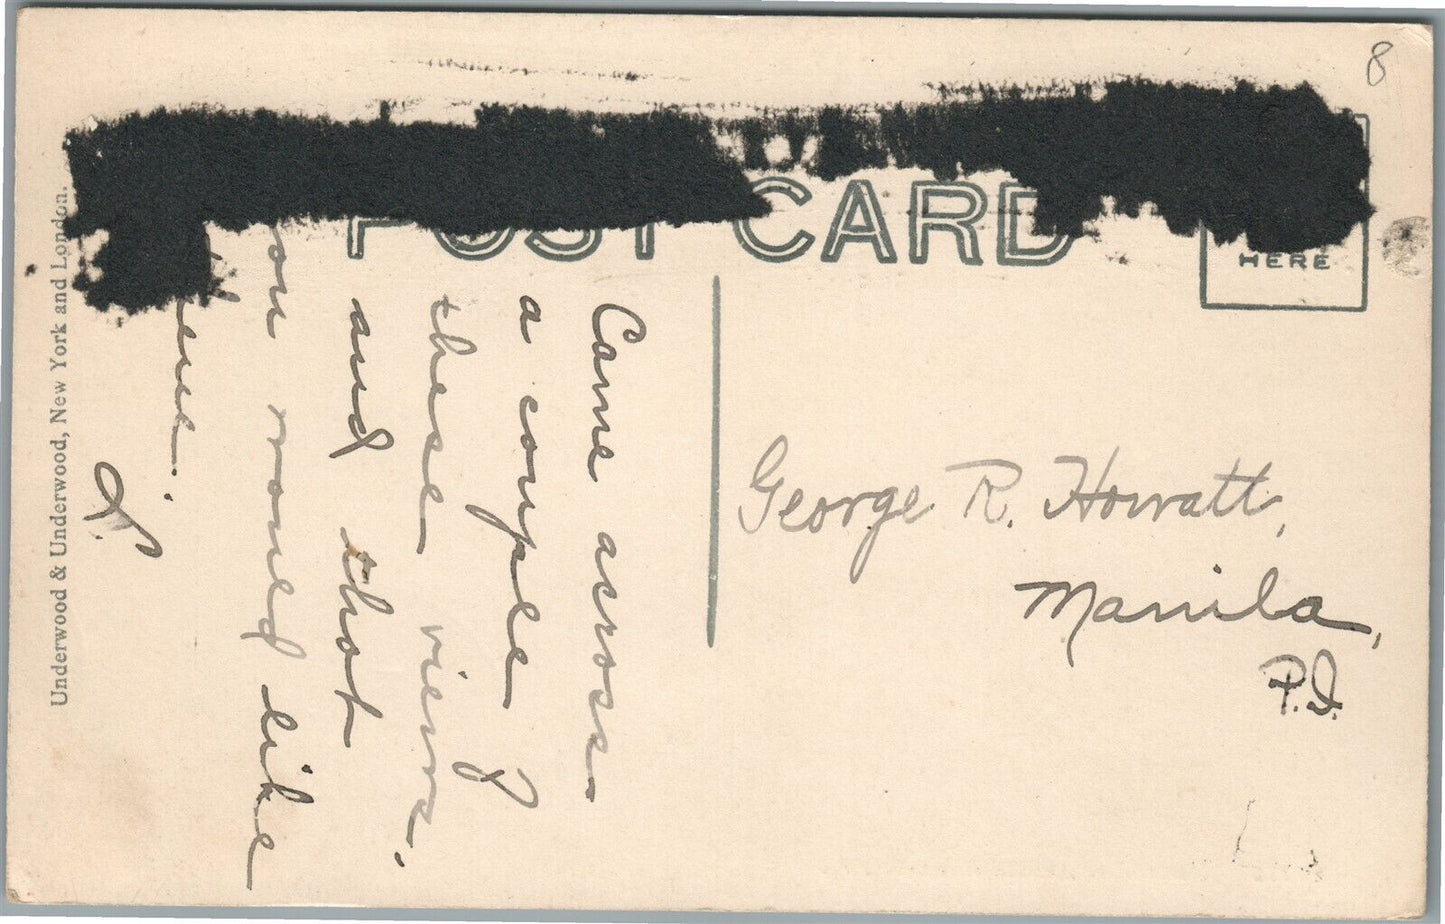 8
POST CARD
HERE
Came across
a couple of
these views.
and thot
you would like
George R. Howatt,
Manila,
P.I.
Underwood & Underwood, New York and London.